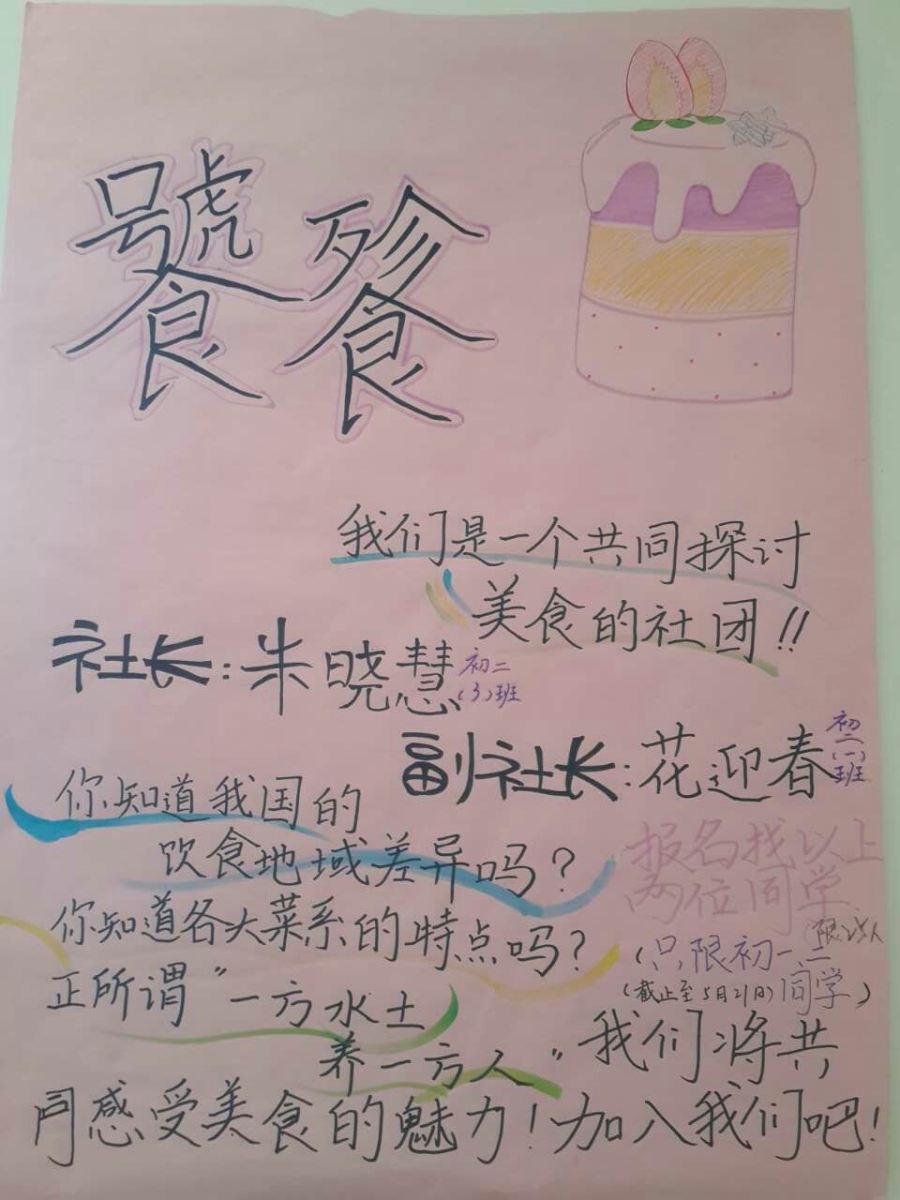 饕餮
我们是一个共同探讨
美食的社团!!
社长:朱晓慧 初二(3)班
副社长:花迎春 初二(一)班
你知道我国的
饮食地域差异吗?
你知道各大菜系的特点吗?
正所谓"一方水土
养一方人"我们将共
同感受美食的魅力!加入我们吧!
报名找以上
两位同学
限25人
(只限初一、二
同学)
(截止至5月21日)